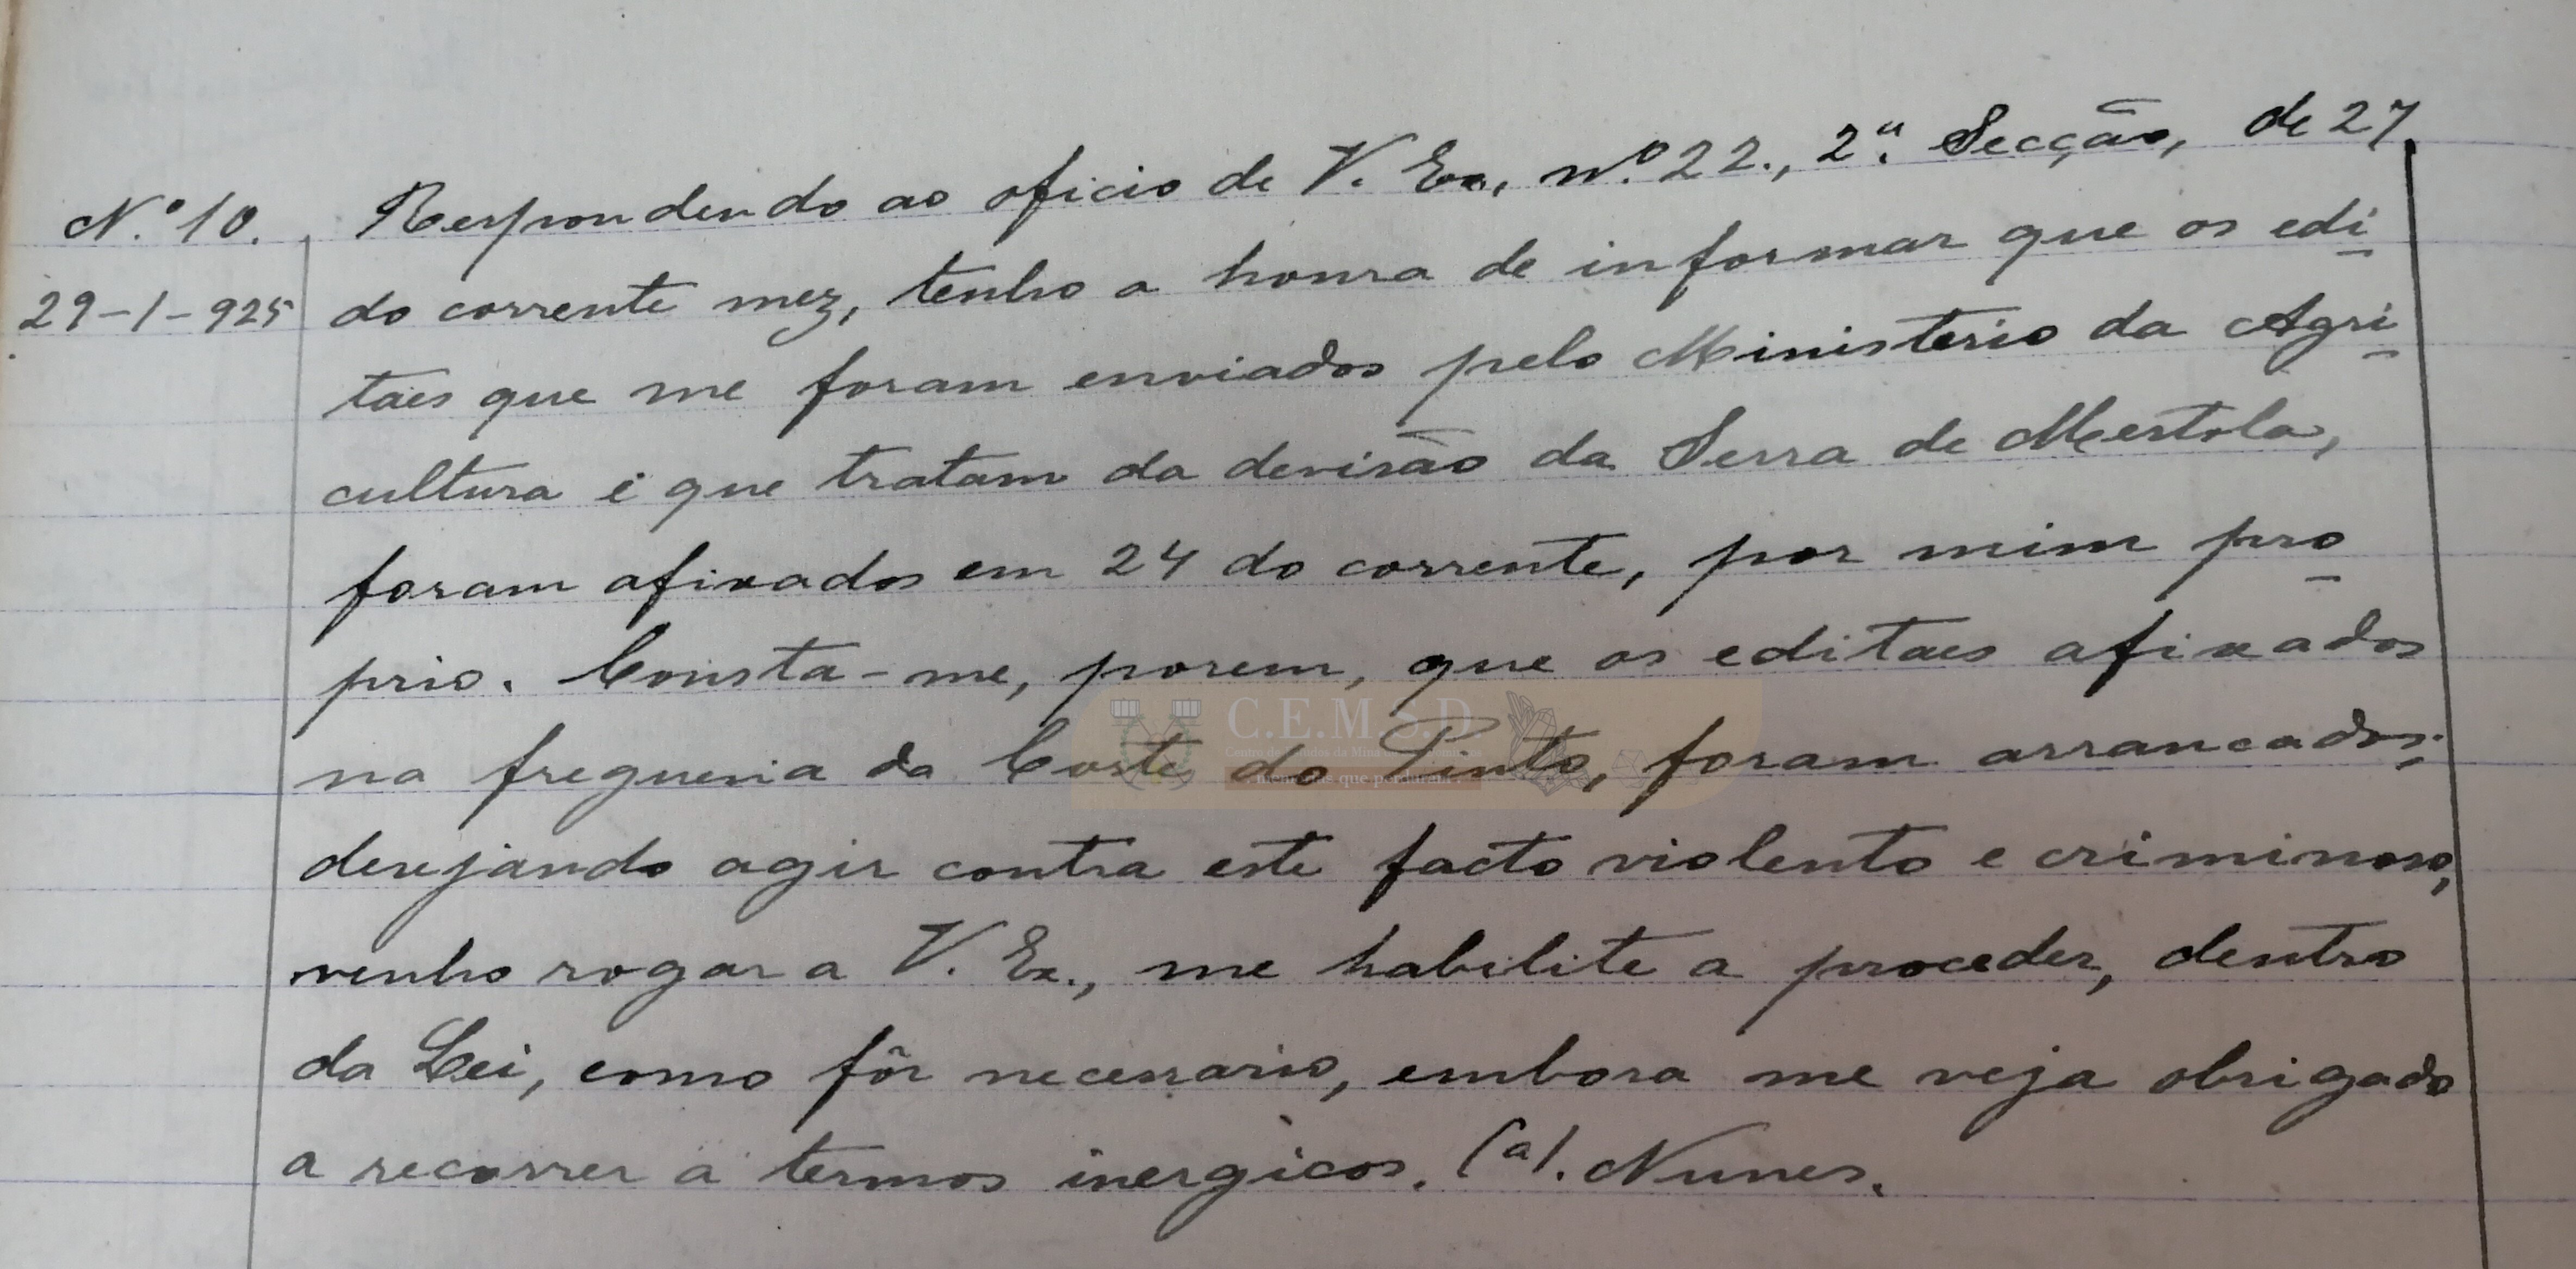 Nº 10. Respondendo ao oficio de V. Ex., nº 22., 2ª. Secção, de 27
29-1-925 do corrente mez, tenho a honra de informar que os edi-
taes que me foram enviados pelo Ministerio da Agri-
cultura e que tratam da devisão da Serra de Mertola,
foram afixados em 24 do corrente, por mim pro-
prio. Consta-me, porem, que os editaes afixados
na freguesia da Corte do Pinto, foram arrancados;
desejando agir contra este facto violento e criminoso,
venho rogar a V. Ex., me habilite a proceder, dentro
da Lei, como fôr necessario, embora me veja obrigado
a recorrer a termos inergicos. (a). Nunes.
C.E.M.S.D
memórias que perduram